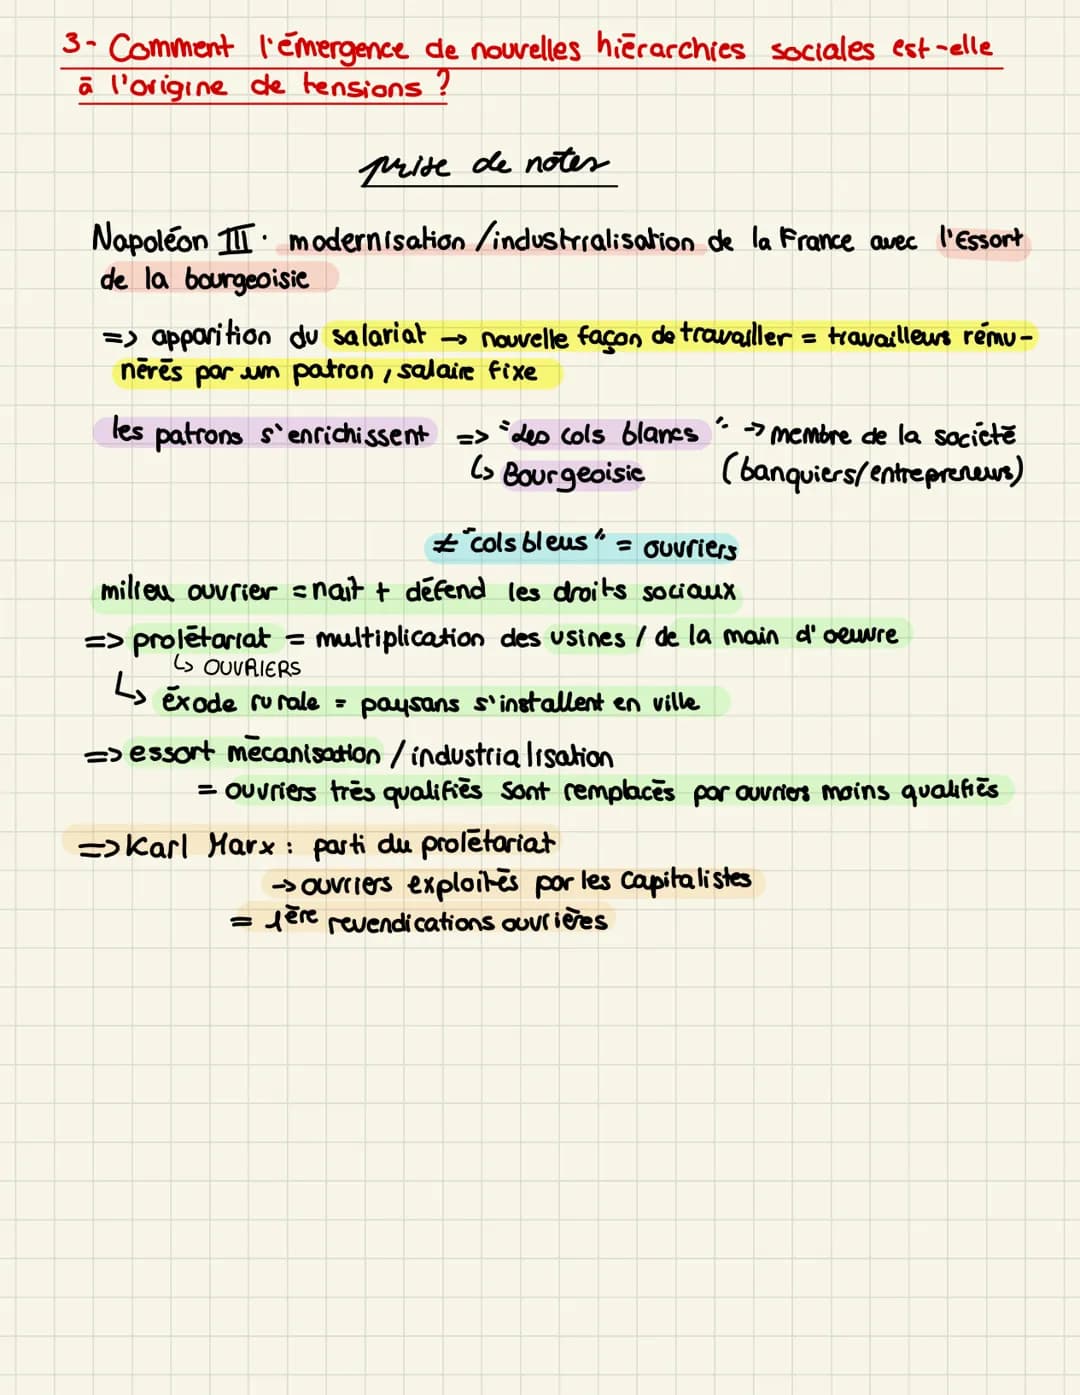 3- Comment l'émergence de nouvelles hiérarchies sociales est-elle
à l'origine de tensions ?
prise de notes
Napoléon III : modernisation / industrialisation de la France avec l'Essort
de la bourgeoisie
=> apparition du salariat → nouvelle façon de travailler = travailleurs rému-
nérés par um patron, salaire fixe
les patrons s'enrichissent => "des cols blancs" → membre de la société
↳ Bourgeoisie (banquiers/entrepreneurs)
≠ "cols bleus" = ouvriers
milieu ouvrier = nait + défend les droits sociaux
=> prolétariat = multiplication des usines / de la main d'oeuvre
↳ OUVRIERS
↳ éxode rurale = paysans s'installent en ville
=> essort mécanisation / industrialisation
= ouvriers très qualifiés sont remplacés par ouvriers moins qualifiés
=> Karl Marx : parti du prolétariat
→ ouvriers exploités par les Capitalistes
= 1ère revendications ouvrières